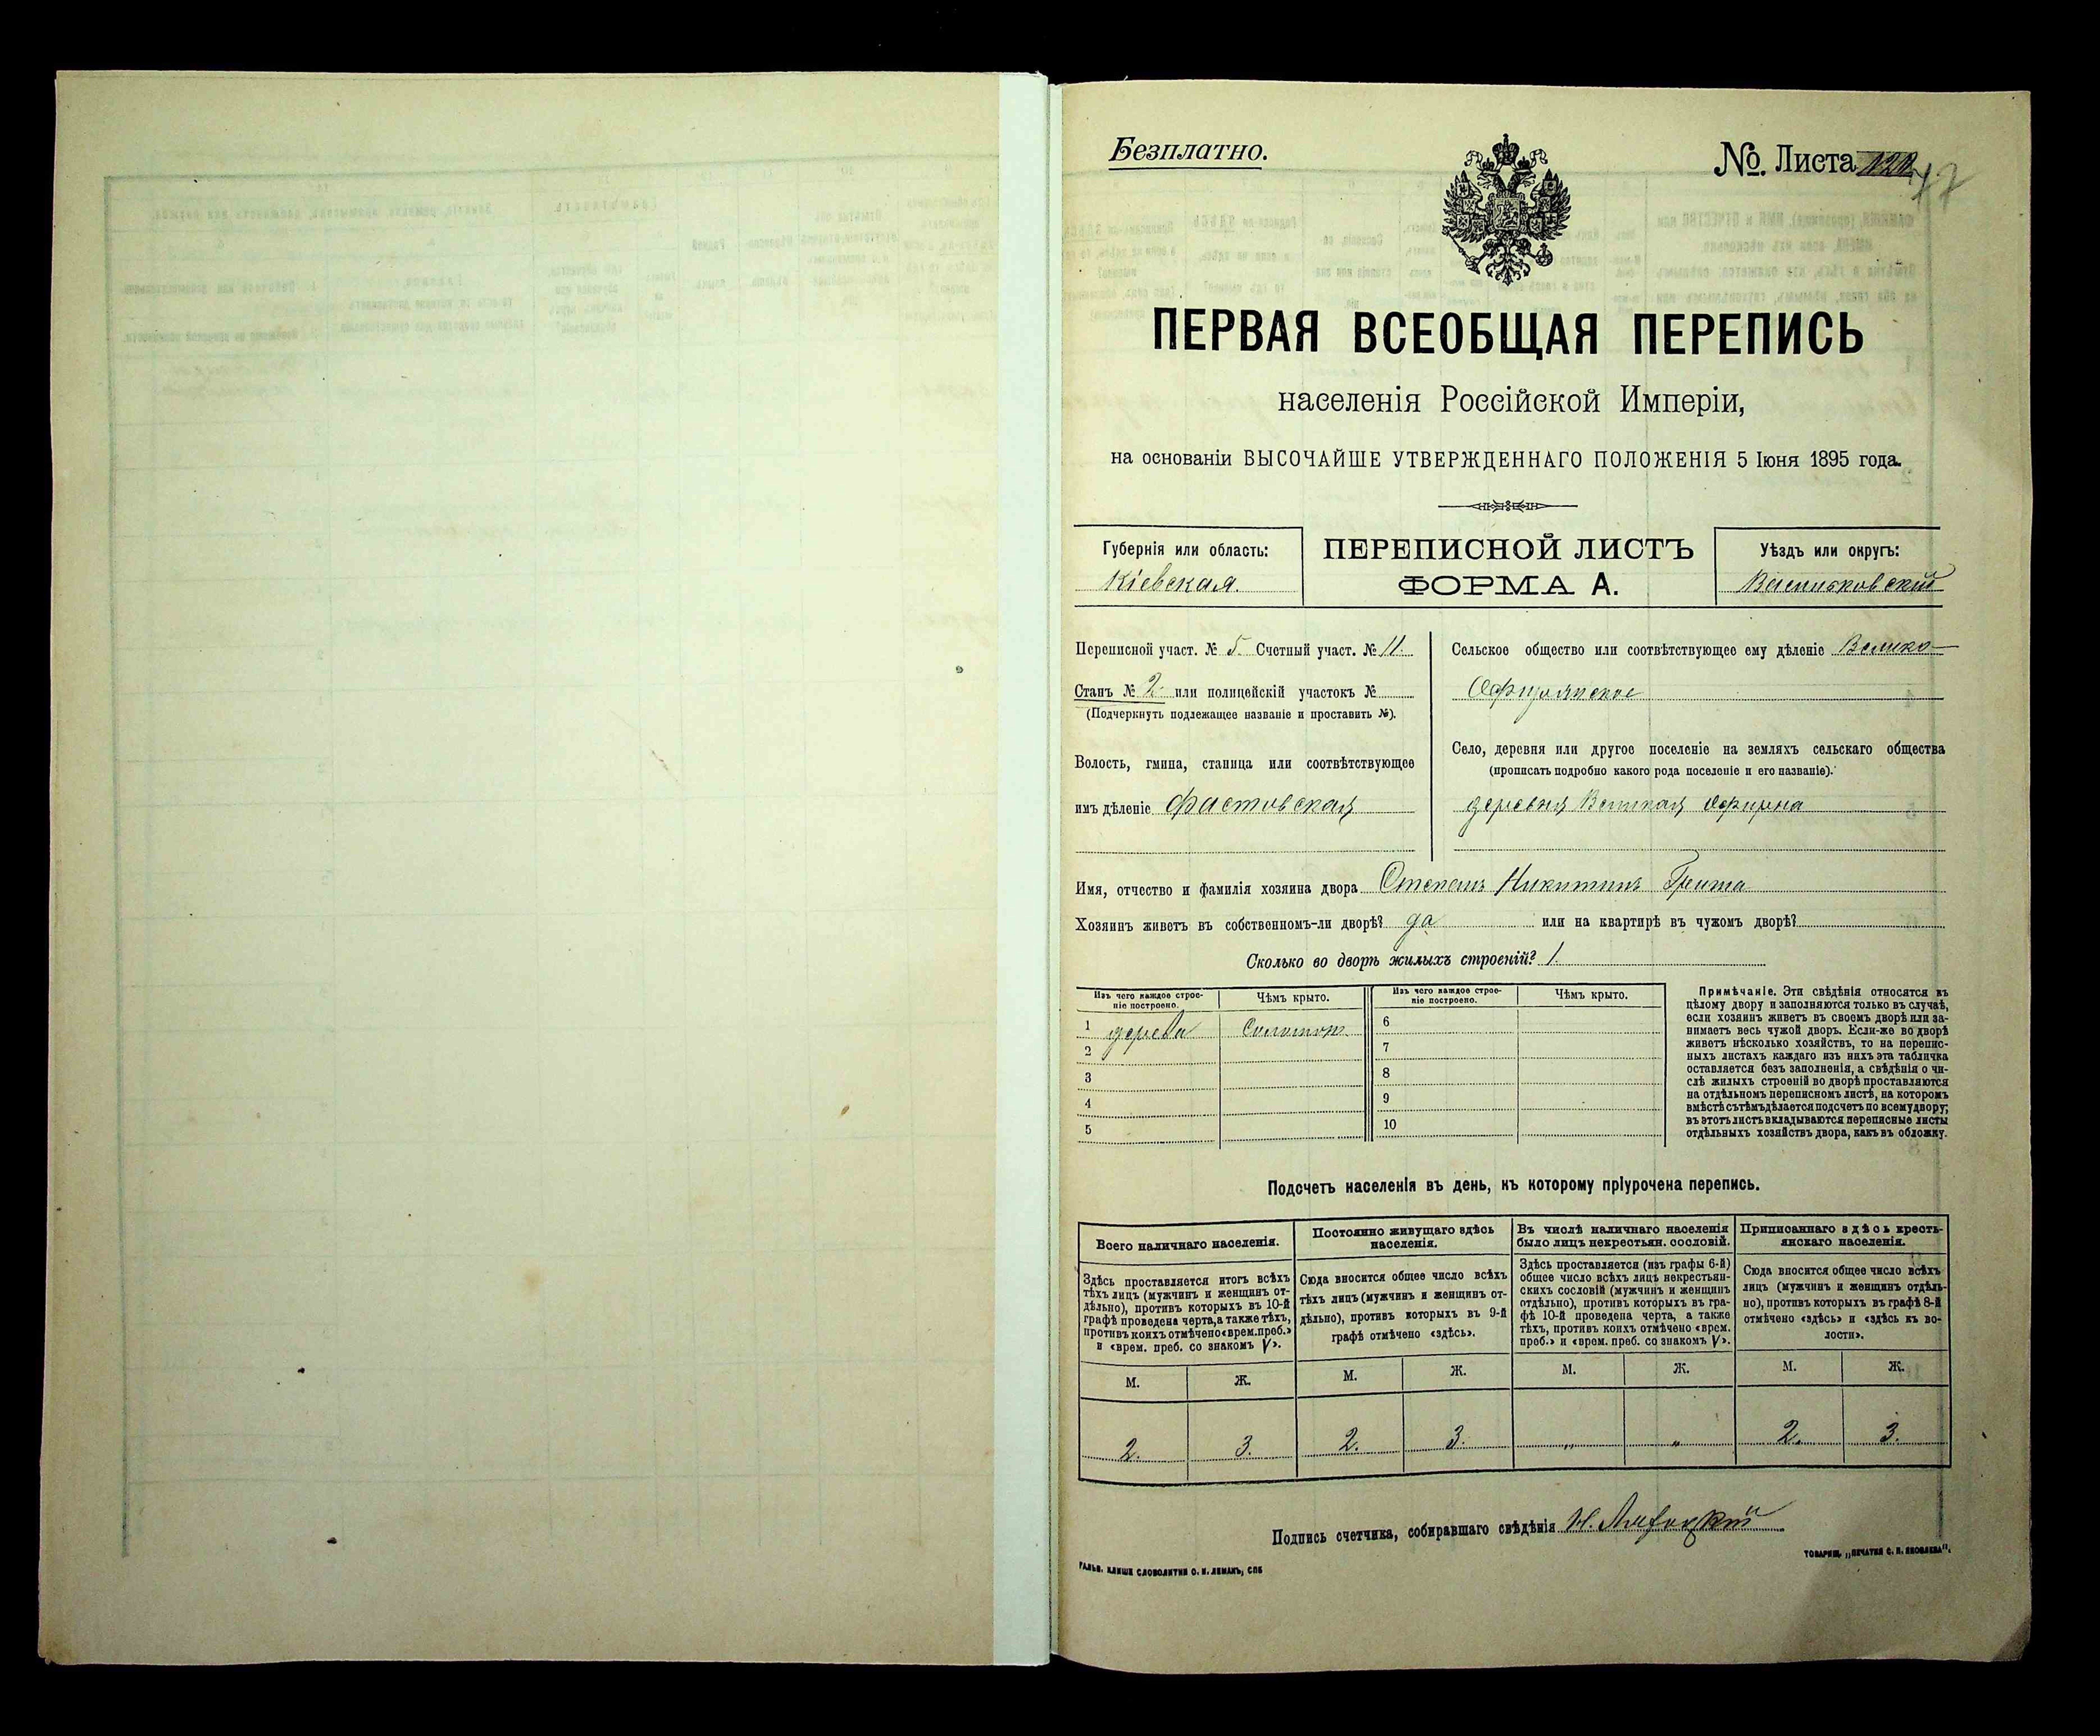 Безплатно.
№. Листа
47
ПЕРВАЯ ВСЕОБЩАЯ ПЕРЕПИСЬ
населенія Россійской Имперіи,
на основаніи ВЫСОЧАЙШЕ УТВЕРЖДЕННАГО ПОЛОЖЕНІЯ 5 Іюня 1895 года.
Губернія или область:
Кіевская.
ПЕРЕПИСНОЙ ЛИСТЪ
ФОРМА А.
Уѣздъ или округъ:
Васильковскій
Переписной участ. № 5. Счетный участ. № 11.
Станъ № 2. или полицейскій участокъ №
(Подчеркнуть подлежащее названіе и проставить №).
Волость, гмина, станица или соотвѣтствующее
имъ дѣленіе Фастовская
Сельское общество или соотвѣтствующее ему дѣленіе Велико-
Офирнянское
Село, деревня или другое поселеніе на земляхъ сельскаго общества
(прописать подробно какого рода поселеніе и его названіе).
деревня Великая Офирна
Имя, отчество и фамилія хозяина двора Степанъ Никитинъ
Хозяинъ живетъ въ собственномъ-ли дворѣ? да или на квартирѣ въ чужомъ дворѣ?
Сколько во дворѣ жилыхъ строеній? 1.
Изъ чего каждое строе-
ніе построено.
Чѣмъ крыто.
Изъ чего каждое строе-
ніе построено.
Чѣмъ крыто.
1 дерева Соломою
2
3
4
5
6
7
8
9
10
Примѣчаніе. Эти свѣдѣнія относятся къ
цѣлому двору и заполняются только въ случаѣ,
если хозяинъ живетъ въ своемъ дворѣ или за-
нимаетъ весь чужой дворъ. Если-же во дворѣ
живетъ нѣсколько хозяйствъ, то на перепис-
ныхъ листахъ каждаго изъ нихъ эта табличка
оставляется безъ заполненія, а свѣдѣнія о чи-
слѣ жилыхъ строеній во дворѣ проставляются
на отдѣльномъ переписномъ листѣ, на которомъ
вмѣстѣ съ тѣмъ дѣлается подсчетъ по всему двору;
въ этотъ листъ вкладываются переписные листы
отдѣльныхъ хозяйствъ двора, какъ въ обложку.
Подсчетъ населенія въ день, къ которому пріурочена перепись.
Всего наличнаго населенія.
Здѣсь проставляется итогъ всѣхъ
тѣхъ лицъ (мужчинъ и женщинъ от-
дѣльно), противъ которыхъ въ 10-й
графѣ проведена черта, а также тѣхъ,
противъ коихъ отмѣчено «врем. преб.»
и «врем. преб. со знакомъ V».
Постоянно живущаго здѣсь
населенія.
Сюда вносится общее число всѣхъ
тѣхъ лицъ (мужчинъ и женщинъ от-
дѣльно), противъ которыхъ въ 9-й
графѣ отмѣчено «здѣсь».
Въ числѣ наличнаго населенія
было лицъ некрестьян. сословій.
Здѣсь проставляется (изъ графы 6-й)
общее число всѣхъ лицъ некрестьян-
скихъ сословій (мужчинъ и женщинъ
отдѣльно), противъ которыхъ въ гра-
фѣ 10-й проведена черта, а также
тѣхъ, противъ коихъ отмѣчено «врем.
преб.» и «врем. преб. со знакомъ V».
Приписаннаго здѣсь кресть-
янскаго населенія.
Сюда вносится общее число всѣхъ
лицъ (мужчинъ и женщинъ отдѣль-
но), противъ которыхъ въ графѣ 8-й
отмѣчено «здѣсь» и «здѣсь къ во-
лости».
М. Ж. М. Ж. М. Ж. М. Ж.
2. 3. 2. 3. „ „ 2. 3.
Подпись счетчика, собиравшаго свѣдѣнія
ГАЛЬВ. КЛИШЕ СЛОВОЛИТНИ О. И. ЛЕМАНЪ, СПБ
ТОВАРИЩ. „ПЕЧАТНЯ С. П. ЯКОВЛЕВА".